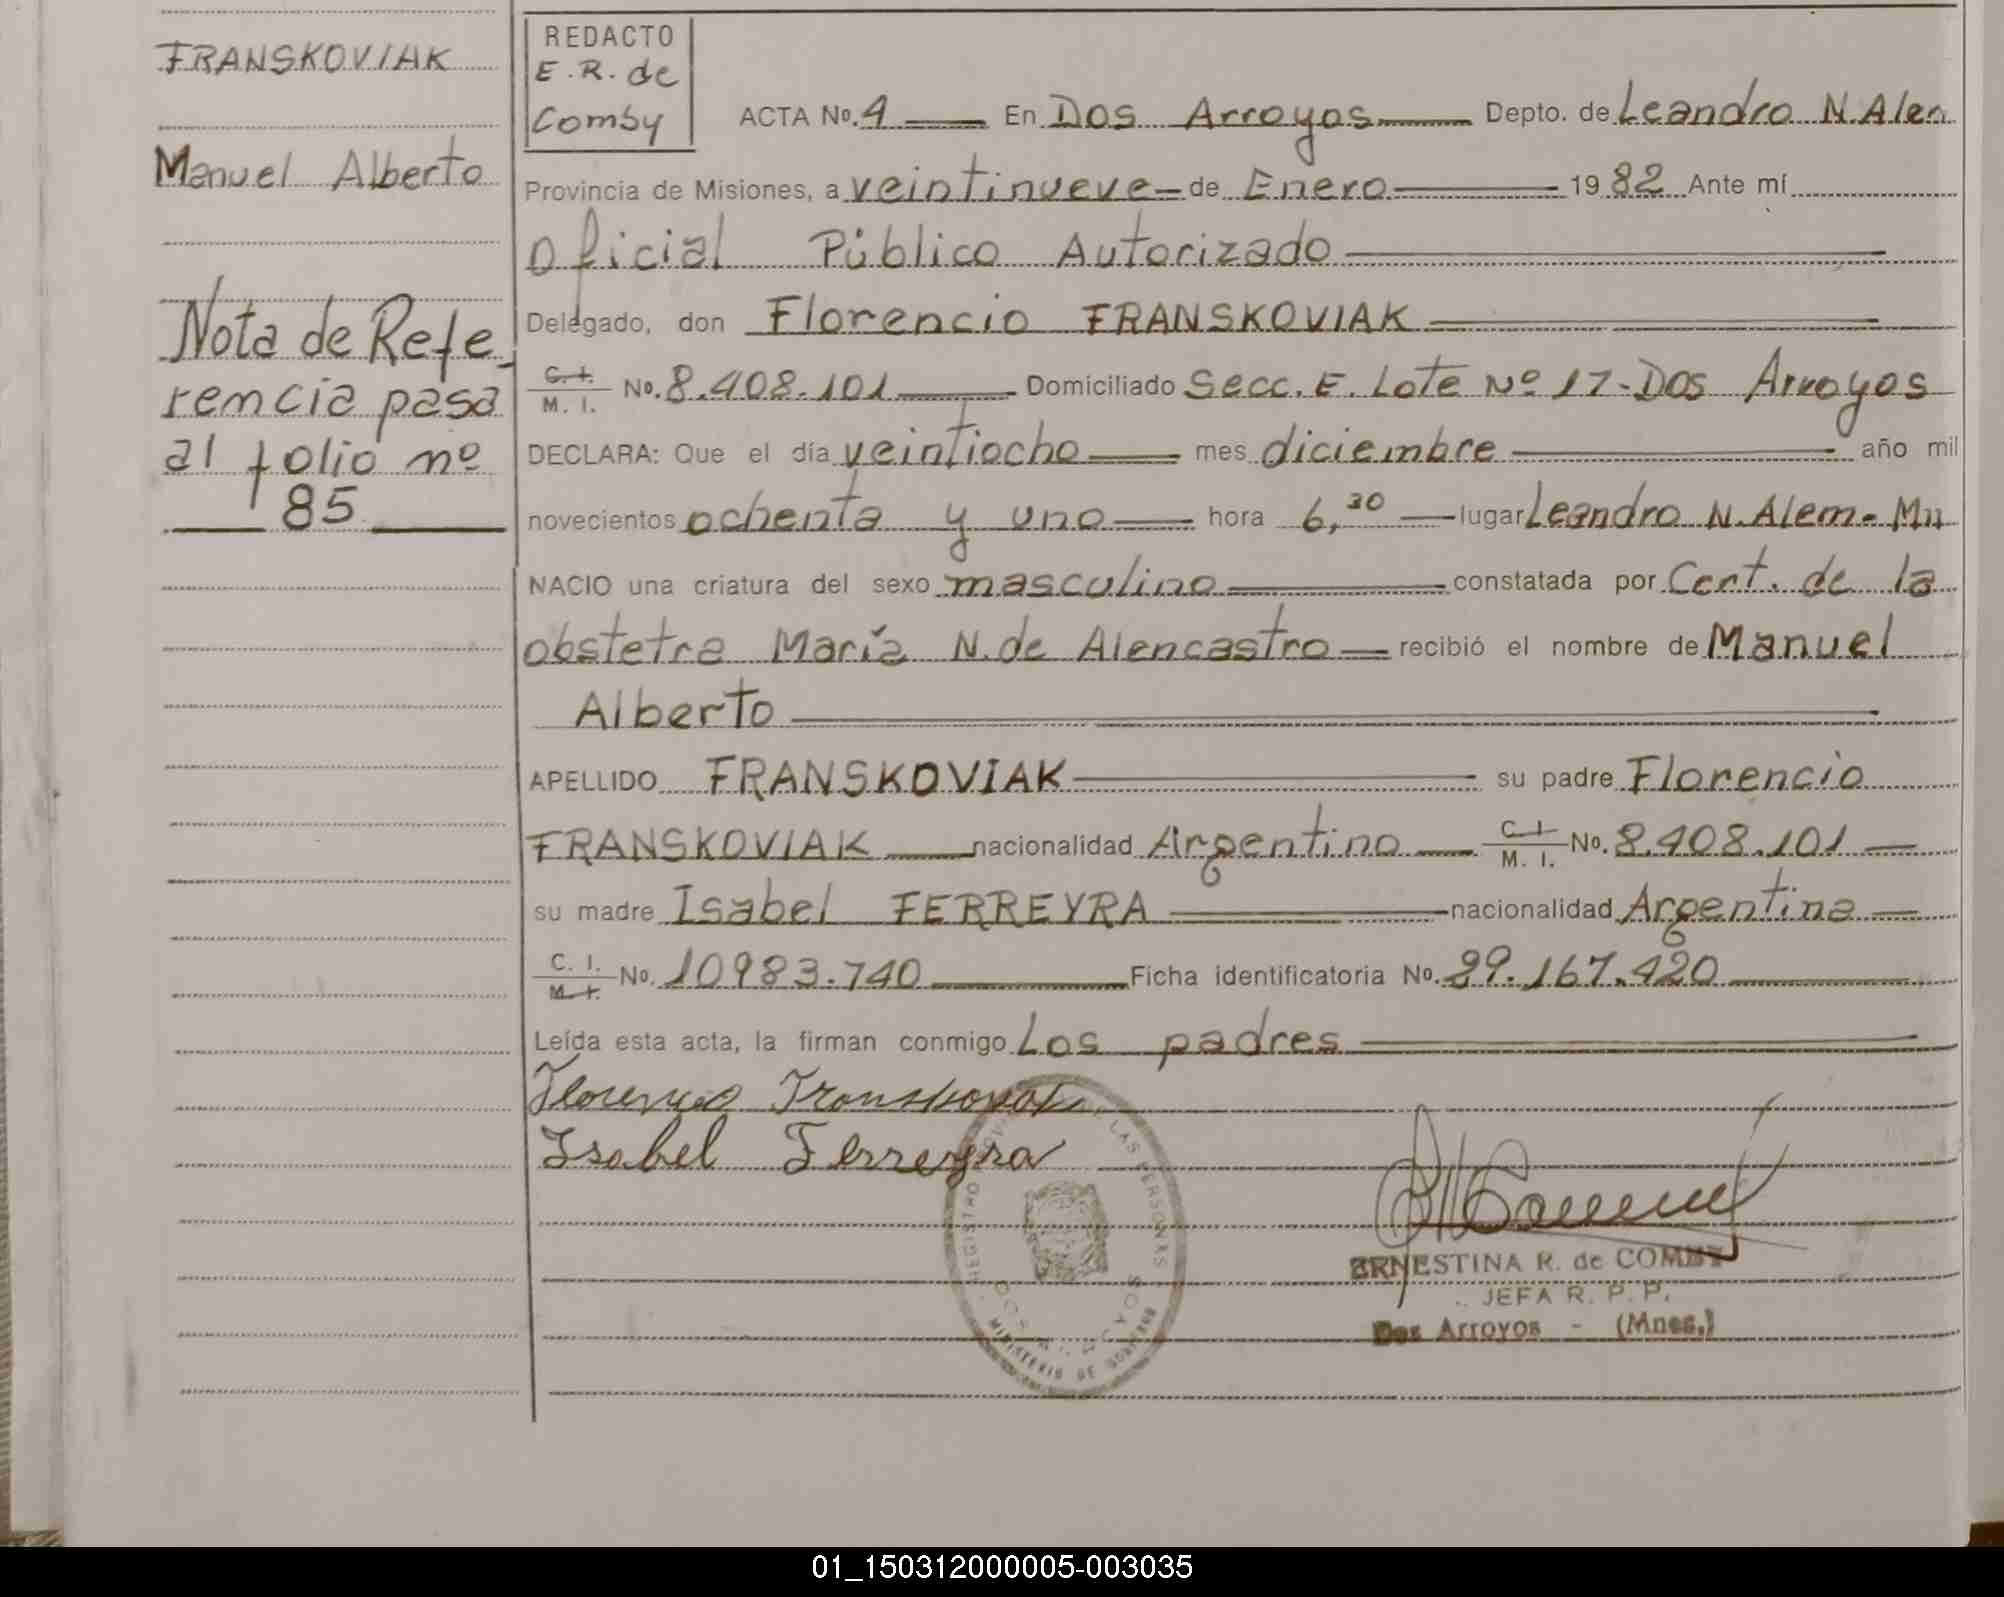 FRANSKOVIAK
Manuel Alberto
Nota de Refe-
rencia pasa
al folio nº
85
REDACTO
E.R. de
Comby
ACTA No. 4 En Dos Arroyos Depto. de Leandro N. Alen
Provincia de Misiones, a veintinueve de Enero 1982 Ante mí
Oficial Público Autorizado
Delegado, don Florencio FRANSKOVIAK
C. I. M. I. No. 8.408.101 Domiciliado Secc. E. Lote Nº 17-Dos Arroyos
DECLARA: Que el día veintiocho mes diciembre año mil
novecientos ochenta y uno hora 6,30 lugar Leandro N. Alem-Mn
NACIO una criatura del sexo masculino constatada por Cert. de la
obstetra María N. de Alencastro recibió el nombre de Manuel
Alberto
APELLIDO FRANSKOVIAK su padre Florencio
FRANSKOVIAK nacionalidad Argentino C. I. M. I. No. 8.408.101
su madre Isabel FERREYRA nacionalidad Argentina
C. I. M. I. No. 10983.740 Ficha identificatoria No. 29.167.420
Leída esta acta, la firman conmigo Los padres
Florencio Franskoviak
Isabel Ferreyra
REGISTRO LAS PERSONAS
MINISTERIO DE GOBIERNO
ERNESTINA R. de COMBY
JEFA R. P. P.
Dos Arroyos - (Mnes.)
01_150312000005-003035